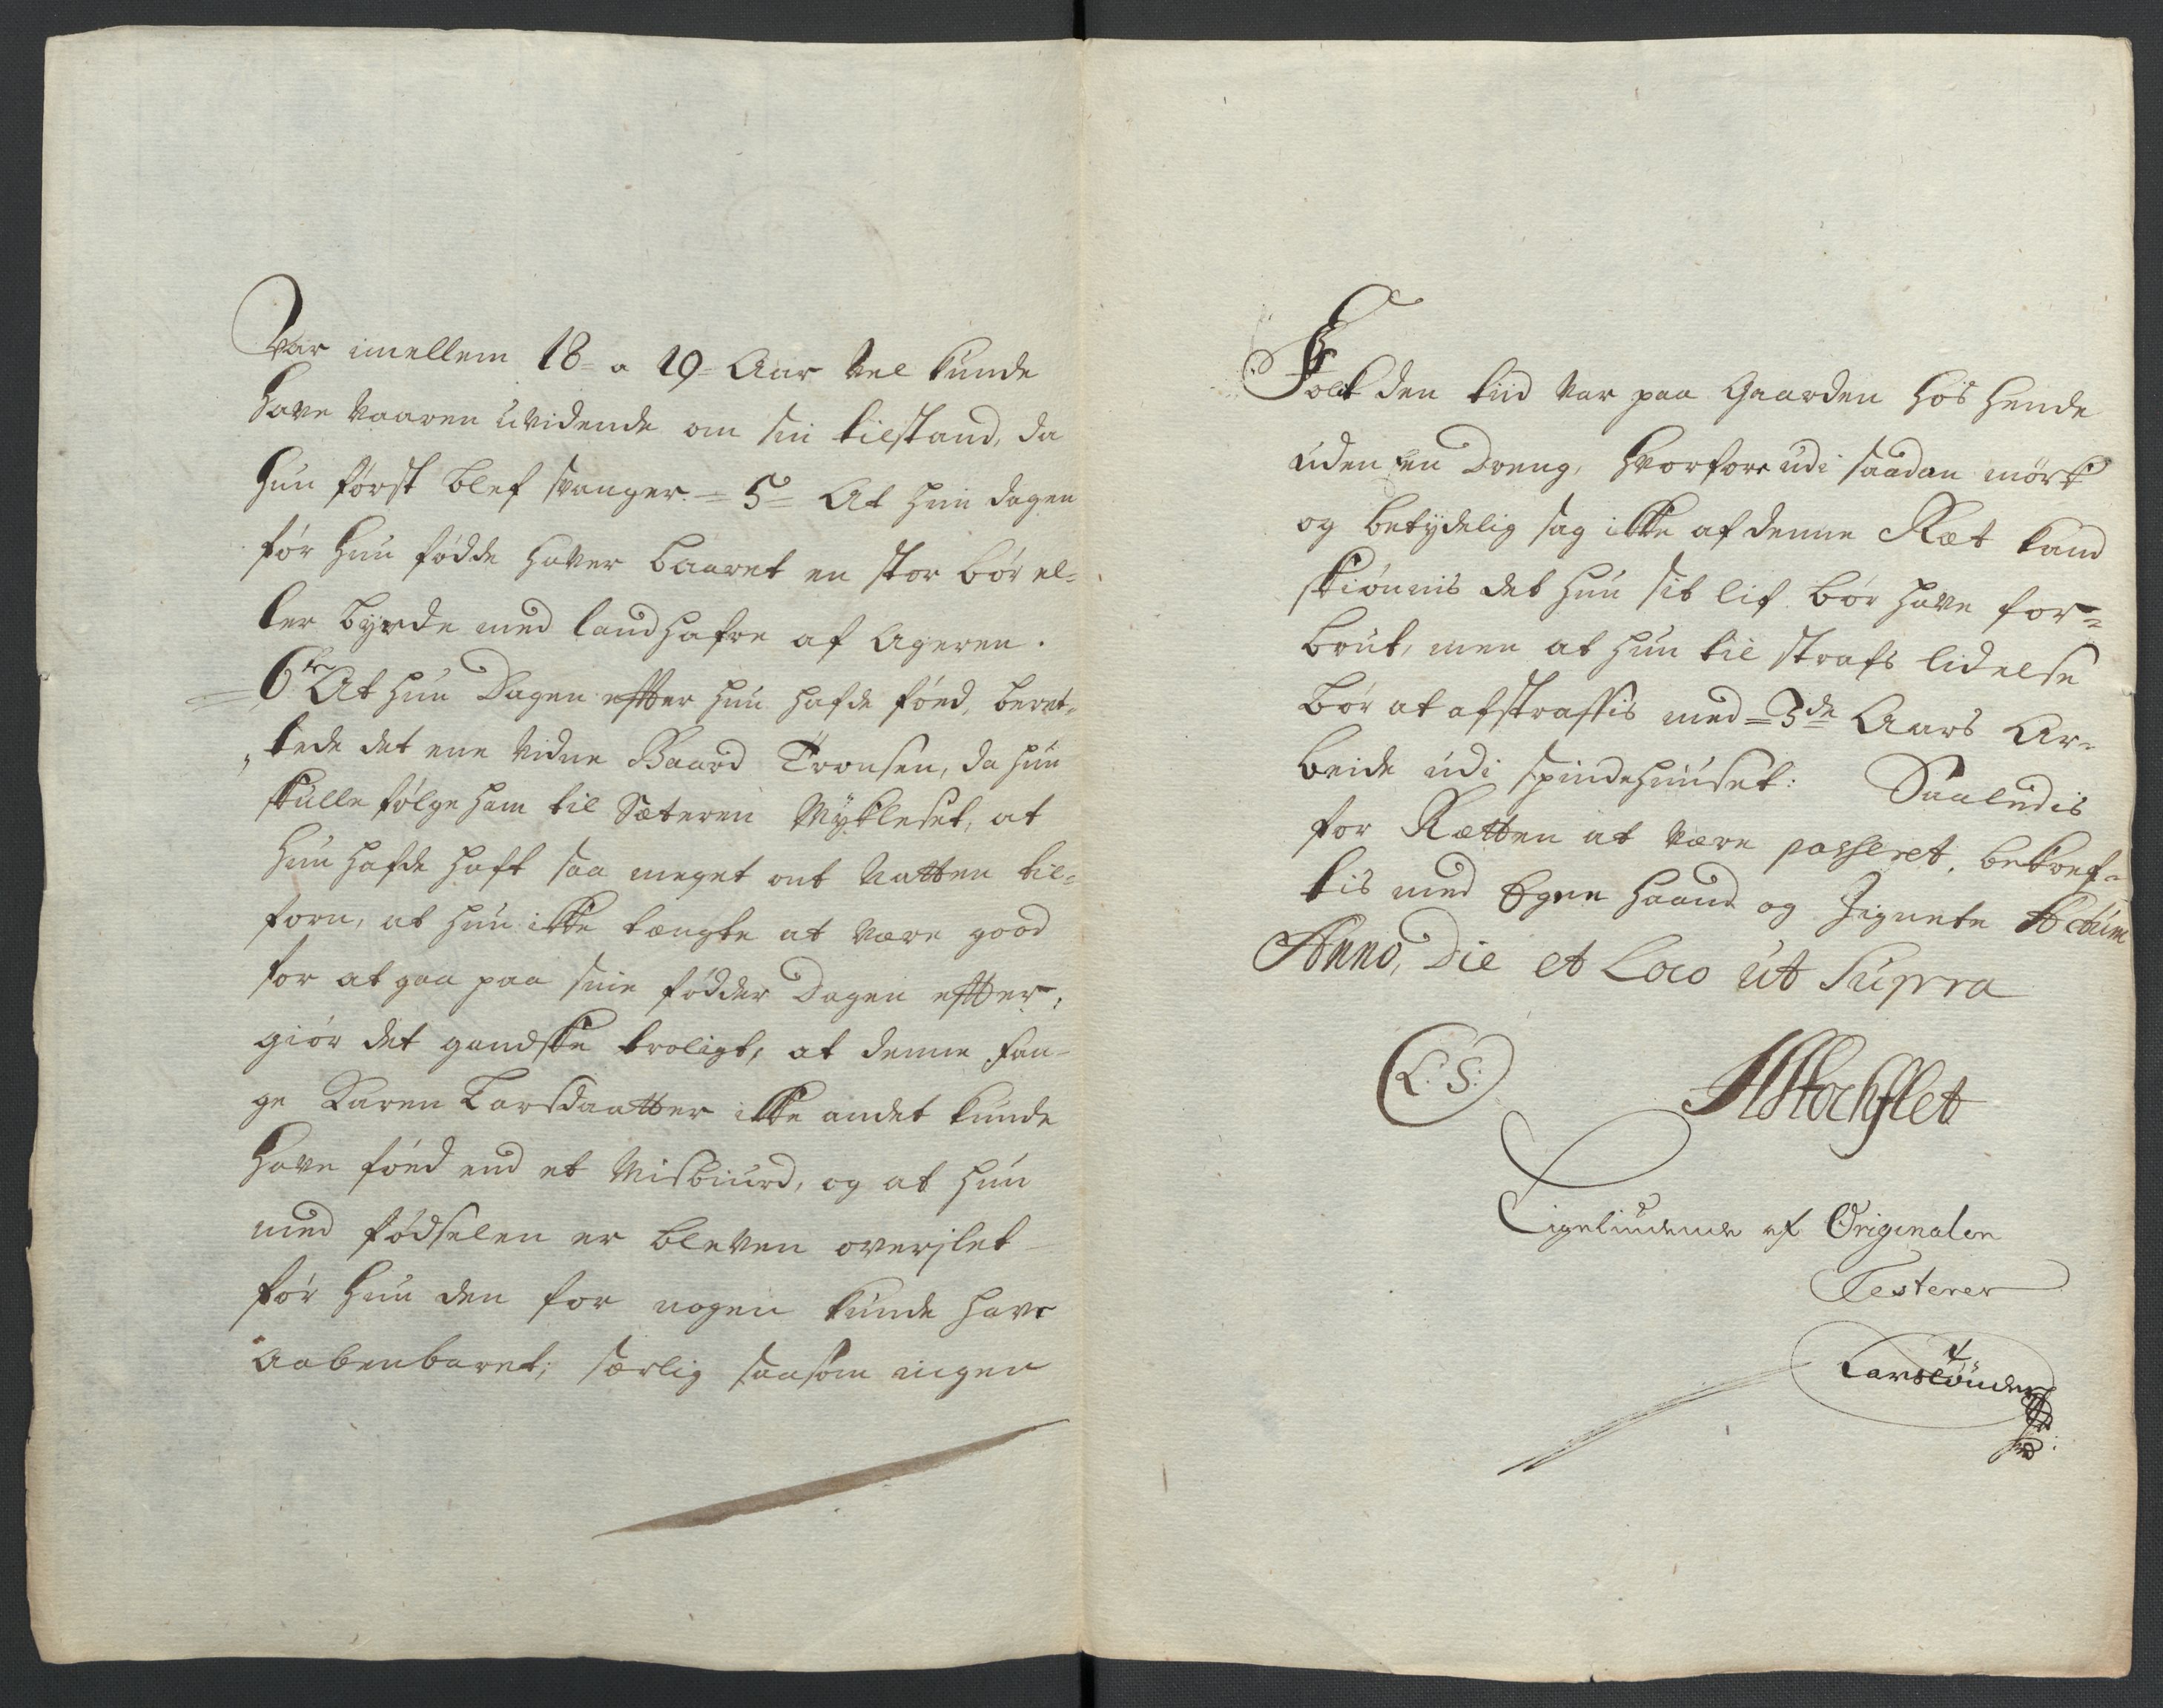 Var imellem 18 a 19 Aar vel kunde
have vaaren uvidende om sin tilstand, da
hun først blef svanger = 5 = At hun dagen
før hun fødde haver baaret en stor bør el-
ler byrde med landhafre af Ageren.
= 6te At hun Dagen effter hun hafde föed, beret-
tede det ene vidne Baard Tronsen, da hun
skulle følge ham til Sæteren Mykleset, at
hun hafde haft saa meget ont Natten til-
forn, at hun ikke tængte at være good
for at gaa paa sine fødder Dagen effter;
giør det gandske troligt, at denne fan-
ge Karen Larsdaatter ikke andet kunde
have föed end et Misbiurd, og at hun
med fødselen er bleven overjlet
før hun den for nogen kunde have
aabenbaret; særlig saasom ingen
Folk den tiid var paa Gaarden hos hende
uden en Dreng, hvorfore udi saadan mörk
og betydelig sag ikke af denne Ræt kand
skiønnis det hun sit lif bör have for-
brut, men at hun til strafs lidelse
bör at afstraffis med = 3de Aars Ar-
beide udi spindehuuset: Saaledis
for Rætten at være passeret, bekref-
tis med Egen haand og Zignete Actum
Anno, Die et Loco ut Supra
L: S:
HStochflet
Ligeliudende af Originalen
Testerer